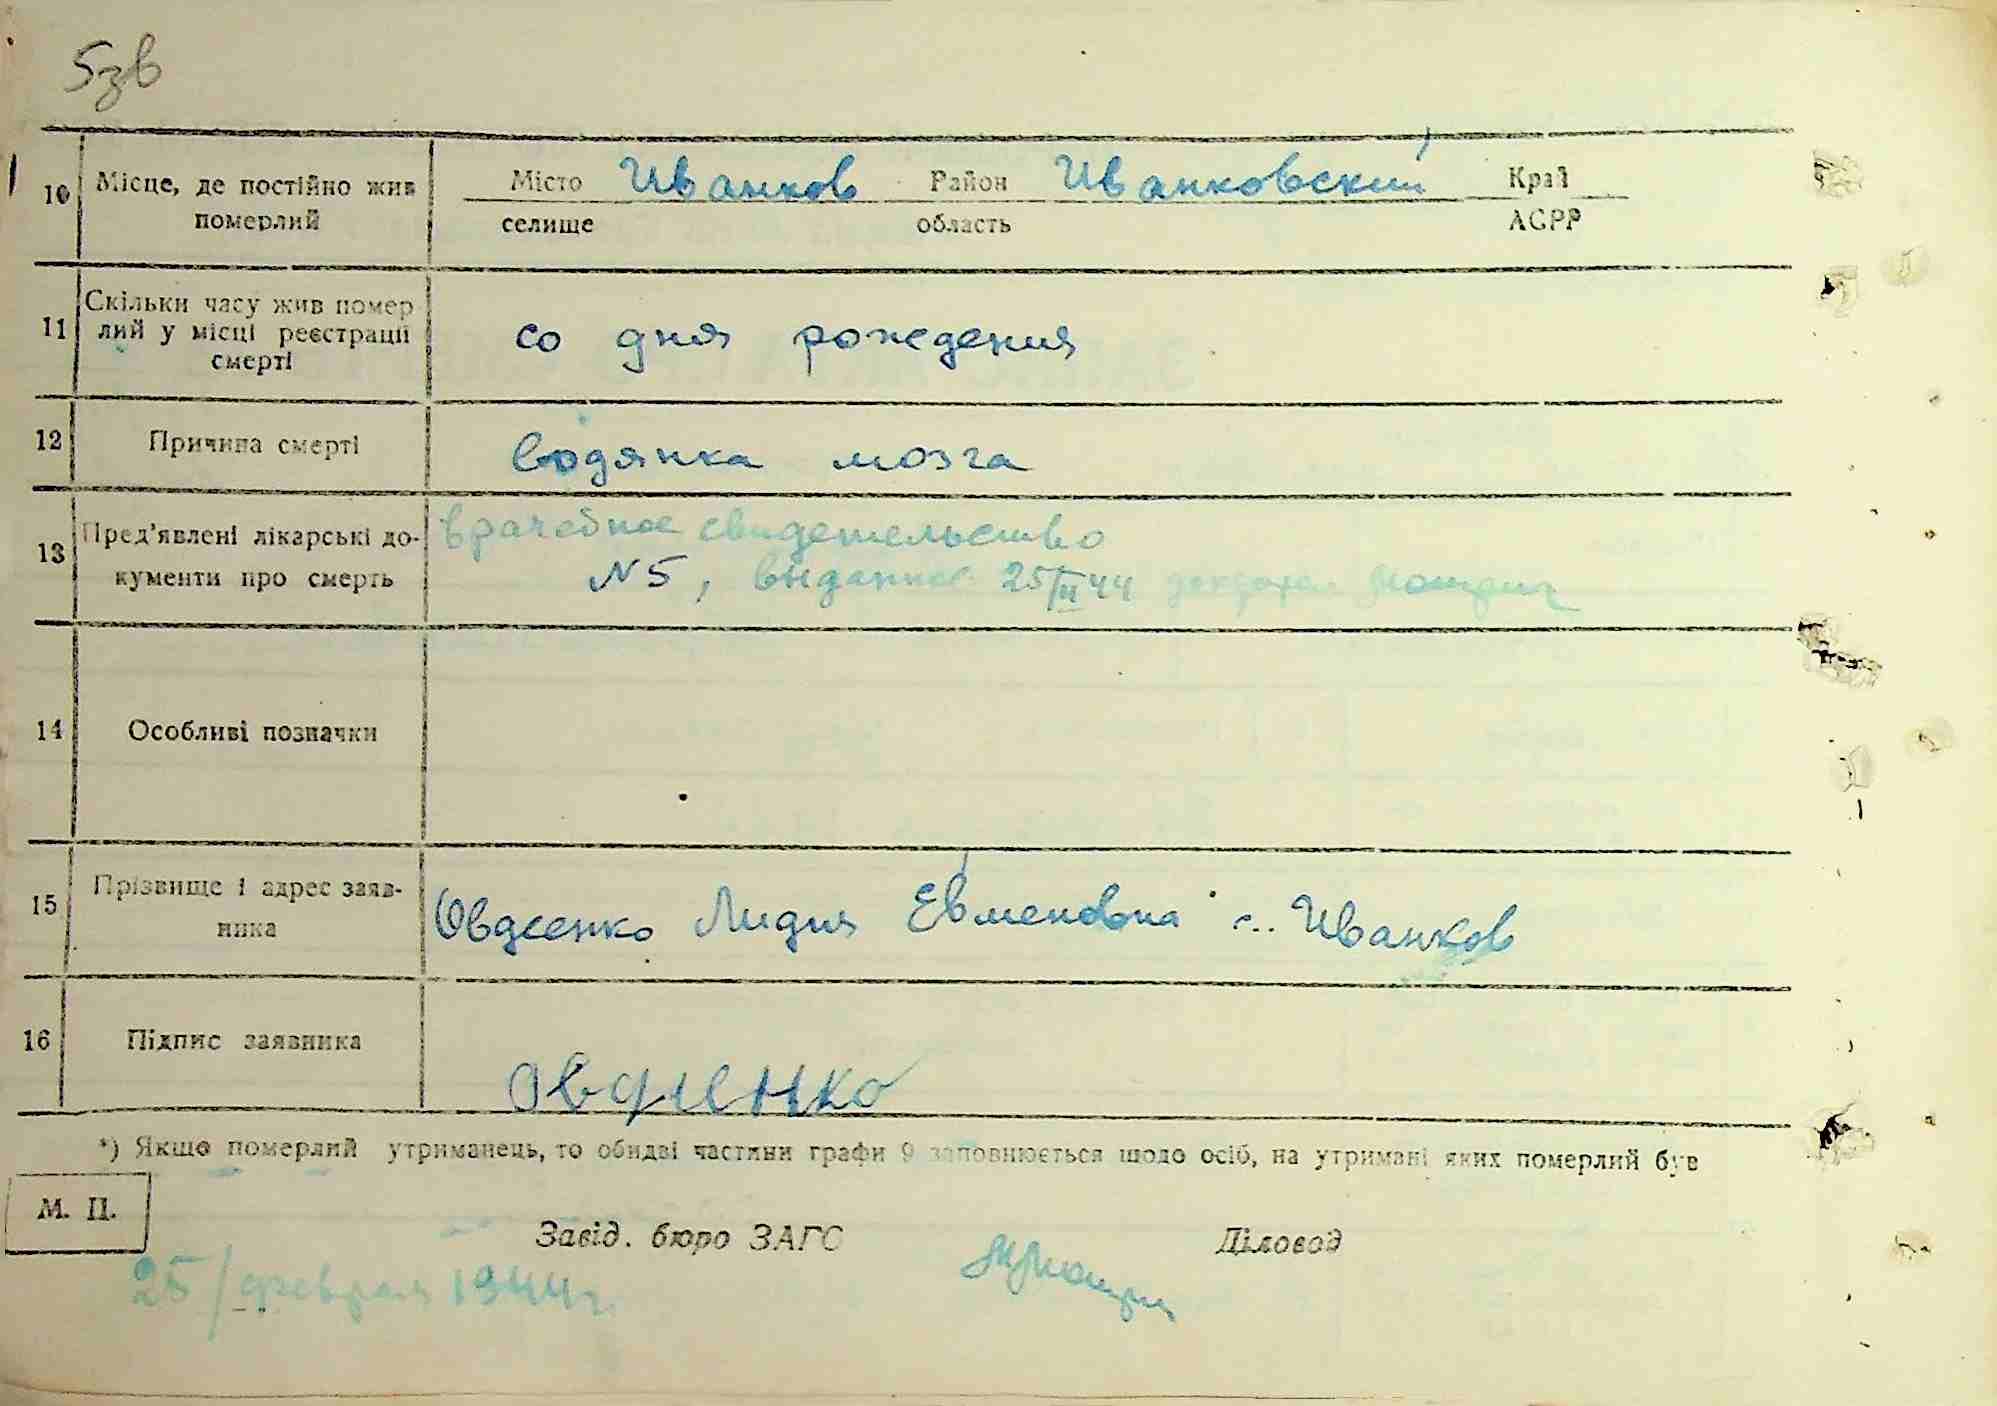 5зв
10 Місце, де постійно жив померлий Місто Иванков Район Иванковский Край
селище область АСРР
11 Скільки часу жив помер
лий у місці реєстрації
смерті
со дня рождения
12 Причина смерті водянка мозга
13 Пред’явлені лікарські до-
кументи про смерть
врачебное свидетельство
N5, выданное 25/II 44 доктором
14 Особливі позначки
15 Прізвище і адрес заяв-
ника
Овдеенко Лидия Евменовна с. Иванков
16 Підпис заявника
Овдиенко
*) Якщо померлий утриманець, то обидві частини графи 9 заповнюється щодо осіб, на утримані яких померлий був
М. П.
Завід. бюро ЗАГС Діловод
25/февраля 1944г.